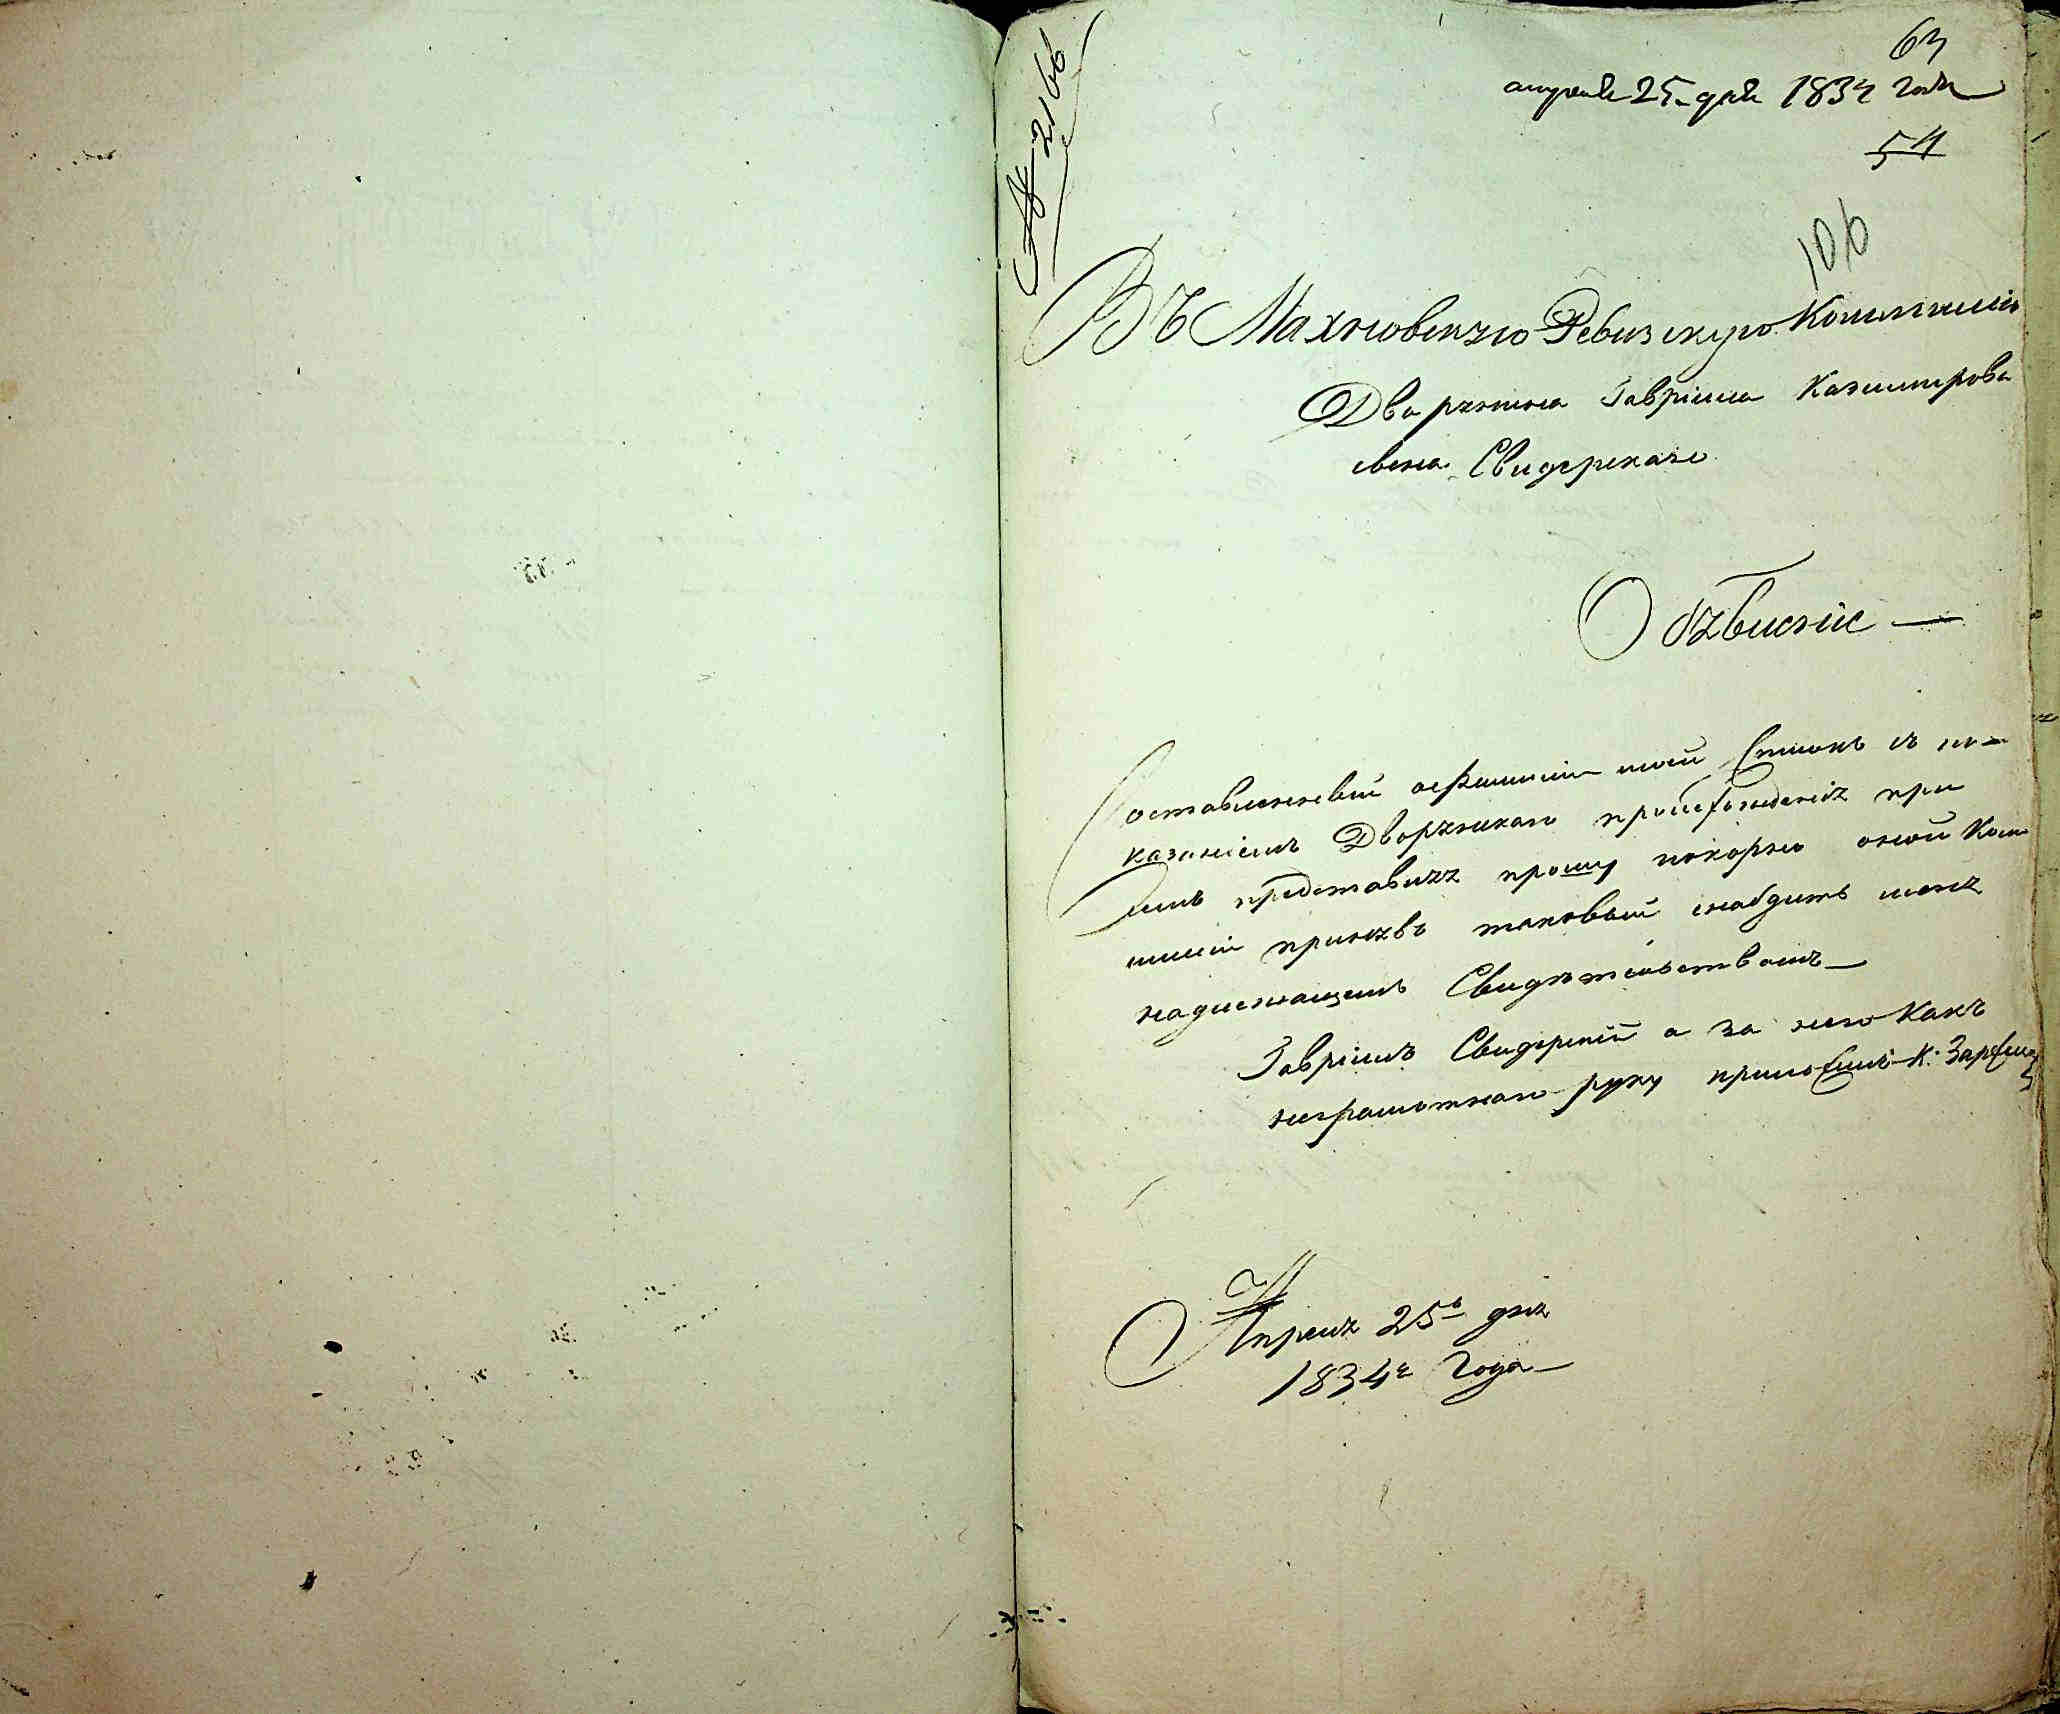 63
апреля 25 дня 1834 года
54
106
№ 2166
Въ Махновскую Ревизскую Коммисію
Дворянина Гавріила Казимирова
сына Свидерскаго
Объявленіе —
Составленный о фамиліи моей Списокъ съ по-
казаніемъ Дворянскаго происхожденія при
семъ представляя прошу покорно оной Ком
мисіи принявъ таковый снабдить меня
надлежащемъ Свидѣтельствомъ —
Гавріилъ Свидерскій а за него какъ
неграмотнаго руку приложилъ К:
Апреля 25ь дня
1834г года —